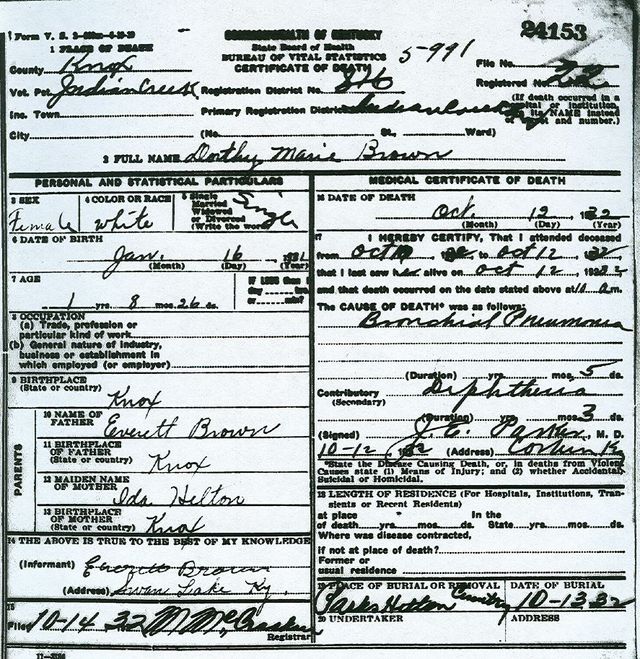 24153
Form V. S.
1 PLACE OF DEATH
COMMONWEALTH OF KENTUCKY
State Board of Health
BUREAU OF VITAL STATISTICS
CERTIFICATE OF DEATH
5-991
File No. 22
County Knox
Registered No. 22
Vot. Pct. Indian Creek Registration District No.
(If death occurred in a hospital or institution, give its NAME instead of street and number.)
Inc. Town Primary Registration District Indian Creek
City (No. St., Ward)
2 FULL NAME Dorthy Marie Brown
PERSONAL AND STATISTICAL PARTICULARS
3 SEX Female
4 COLOR OR RACE white
5 Single Married Widowed or Divorced (Write the word) Single
6 DATE OF BIRTH
Jan. 16
(Month) (Day) (Year)
7 AGE
1 yrs. 8 mos. 26 ds.
IF LESS than
8 OCCUPATION
(a) Trade, profession or
particular kind of work
(b) General nature of industry,
business or establishment in
which employed (or employer)
9 BIRTHPLACE
(State or country) Knox
PARENTS
10 NAME OF
FATHER Everett Brown
11 BIRTHPLACE
OF FATHER
(State or country) Knox
12 MAIDEN NAME
OF MOTHER Ida Helton
13 BIRTHPLACE
OF MOTHER
(State or country) Knox
14 THE ABOVE IS TRUE TO THE BEST OF MY KNOWLEDGE
(Informant) Everett Brown
(Address) Swan Lake Ky.
15
Filed 10-14 32
Registrar
MEDICAL CERTIFICATE OF DEATH
16 DATE OF DEATH
Oct. 12, 1932
(Month) (Day) (Year)
17 I HEREBY CERTIFY, That I attended deceased
from Oct to Oct 12 32
that I last saw her alive on Oct 12, 1932
and that death occurred on the date stated above at 10 a.m.
The CAUSE OF DEATH* was as follows:
Bronchial Pneumonia
(Duration) yrs. mos. 5 ds.
Contributory Diphtheria
(Secondary)
(Duration) yrs. mos. 3 ds.
(Signed) J. E. Parker, M. D.
10-12, 1932 (Address) Corbin Ky
*State the Disease Causing Death, or, in deaths from Violent
Causes state (1) Means of Injury; and (2) whether Accidental,
Suicidal or Homicidal.
18 LENGTH OF RESIDENCE (For Hospitals, Institutions, Tran-
sients or Recent Residents)
at place In the
of death yrs. mos. ds. State yrs. mos. ds.
Where was disease contracted,
if not at place of death?
Former or
usual residence
19 PLACE OF BURIAL OR REMOVAL
DATE OF BURIAL
10-13 32
20 UNDERTAKER
ADDRESS